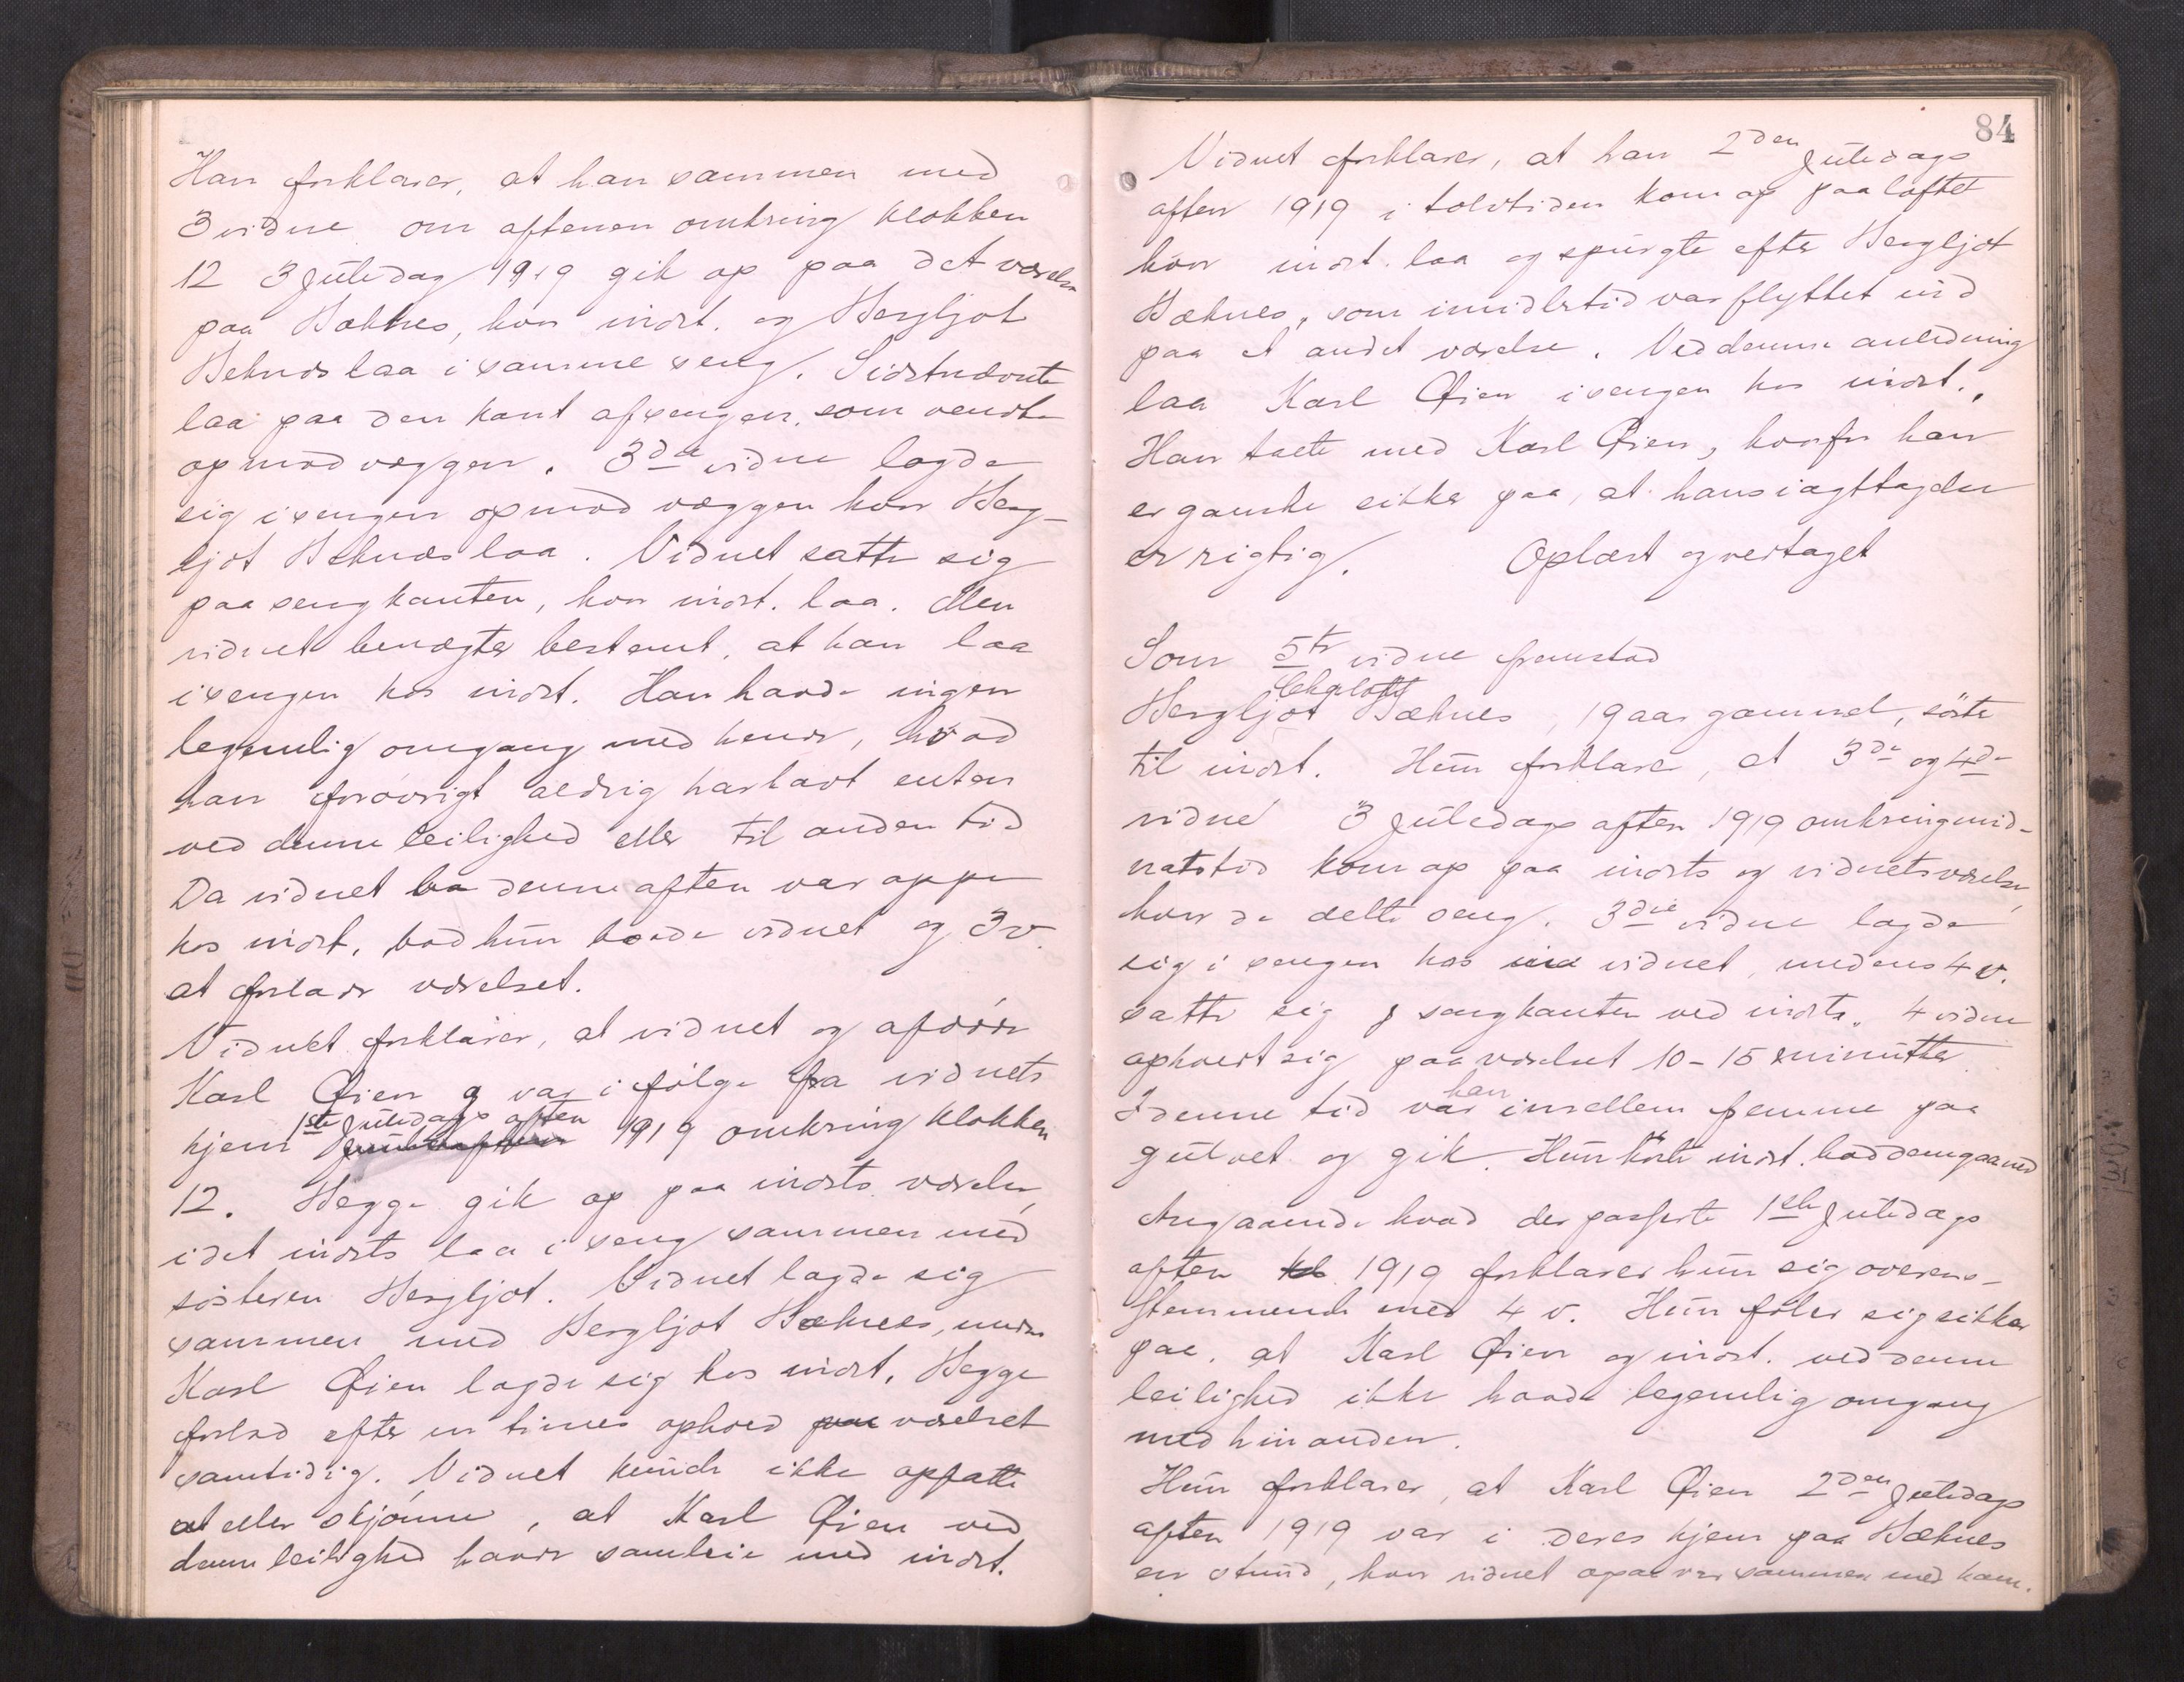 Han forklarer, at han sammen med
3 vidne om aftenen omkring klokken
12 3 juledag 1919 gik op paa det værelse
paa Bæknes, hvor indst. og Bergljot
Beknes laa i samme seng. Sidstnævnte
laa paa den kant af sengen, som vendte
op mod væggen. 3die vidne lagde
sig i sengen op mod væggen hvor Berg-
ljot Beknes laa. Vidnet satte sig
paa sengkanten, hvor indst. laa. Men
vidnet benægter bestemt, at han laa
i sengen hos indst. Han havde ingen
legemlig omgang med hende, hvad
han forøvrigt aldrig har havt enten
ved denne leilighed eller til anden tid
Da vidnet denne aften var oppe
hos indst, bad hun baade vidnet og 3 v.
at forlade værelset.
Vidnet forklarer, at vidnet og afdøde
Karl Øien var i følge fra vidnets
1ste juledags aften
hjem 1919 omkring klokken
12. Begge gik op paa indsts værelse,
idet indsts laa i seng sammen med
søsteren Bergljot. Vidnet lagde sig
sammen med Bergljot Bæknes, medens
Karl Øien lagde sig hos indst. Begge
forlod efter en times ophold værelset
samtidig. Vidnet kunde ikke opfatte
at eller skjønne, at Karl Øien ved
denne leilighed havde samleie med indst.
84
Vidnet forklarer, at han 2den juledags
aften 1919 i tolvtiden kom op paa loftet
hvor indst. laa og spurgte efter Bergljot
Bæknes, som imidlertid var flyttet ind
paa et andet værelse. Ved denne anledning
laa Karl Øien i sengen hos indst.,
Han talte med Karl Øien, hvorfor han
er ganske sikker paa, at hans iagttagelse
er rigtig. Oplæst og vedtaget
Som 5te vidne fremstod
Bergljot Bæknes, 19 aar gammel, søster
til indst. Hun forklarer, at 3de og 4de
vidne 3 juledags aften 1919 omkring mid-
natstid kom op paa indsts og vidnets værelse,
hvor de delte seng. 3die vidne lagde
sig i sengen hos vidnet, medens 4 v.
satte sig på sengkanten ved indsts. 4 vidne
opholdt sig paa værelset 10-15 minutter
han
I denne tid var imellem fremme paa
gulvet og gik. Hun hørte indst. bad dem gaa ned
Angaaende hvad der passerte 1ste juledags
aften 1919 forklarer hun sig overens-
stemmende med 4 v. Hun føler sig sikker
paa, at Karl Øien og indst. ved denne
leilighed ikke havde legemlig omgang
med hinanden.
Hun forklarer, at Karl Øien 2den juledags
aften 1919 var i deres hjem paa Bæknes
en stund, hvor vidnet ogsaa var sammen med ham.